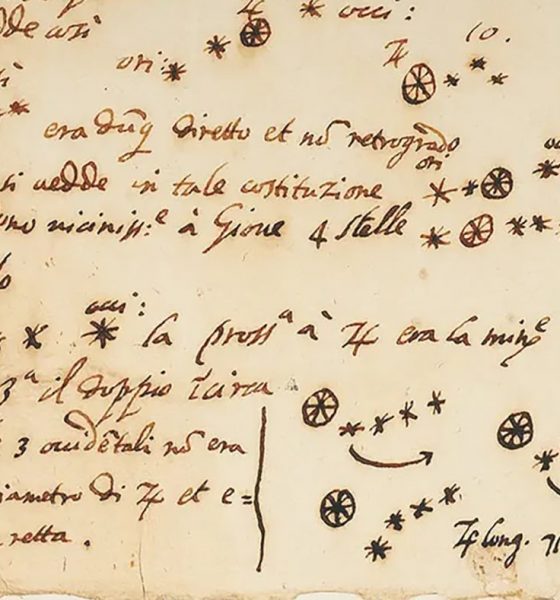 ♃ occi:
dde cosi
ori:
♃ 10.
era dũq diretto et nõ retrogrado
ori
si uedde in tale costituzione
uno viciniss:ᵉ à Gioue 4 stelle
occi:
la prossᵃ à ♃ era la minᵉ
3ᵃ il doppio ĩcirca
3 occidẽtali nõ era
iametro di ♃ et e=
retta.
♃ long. 7